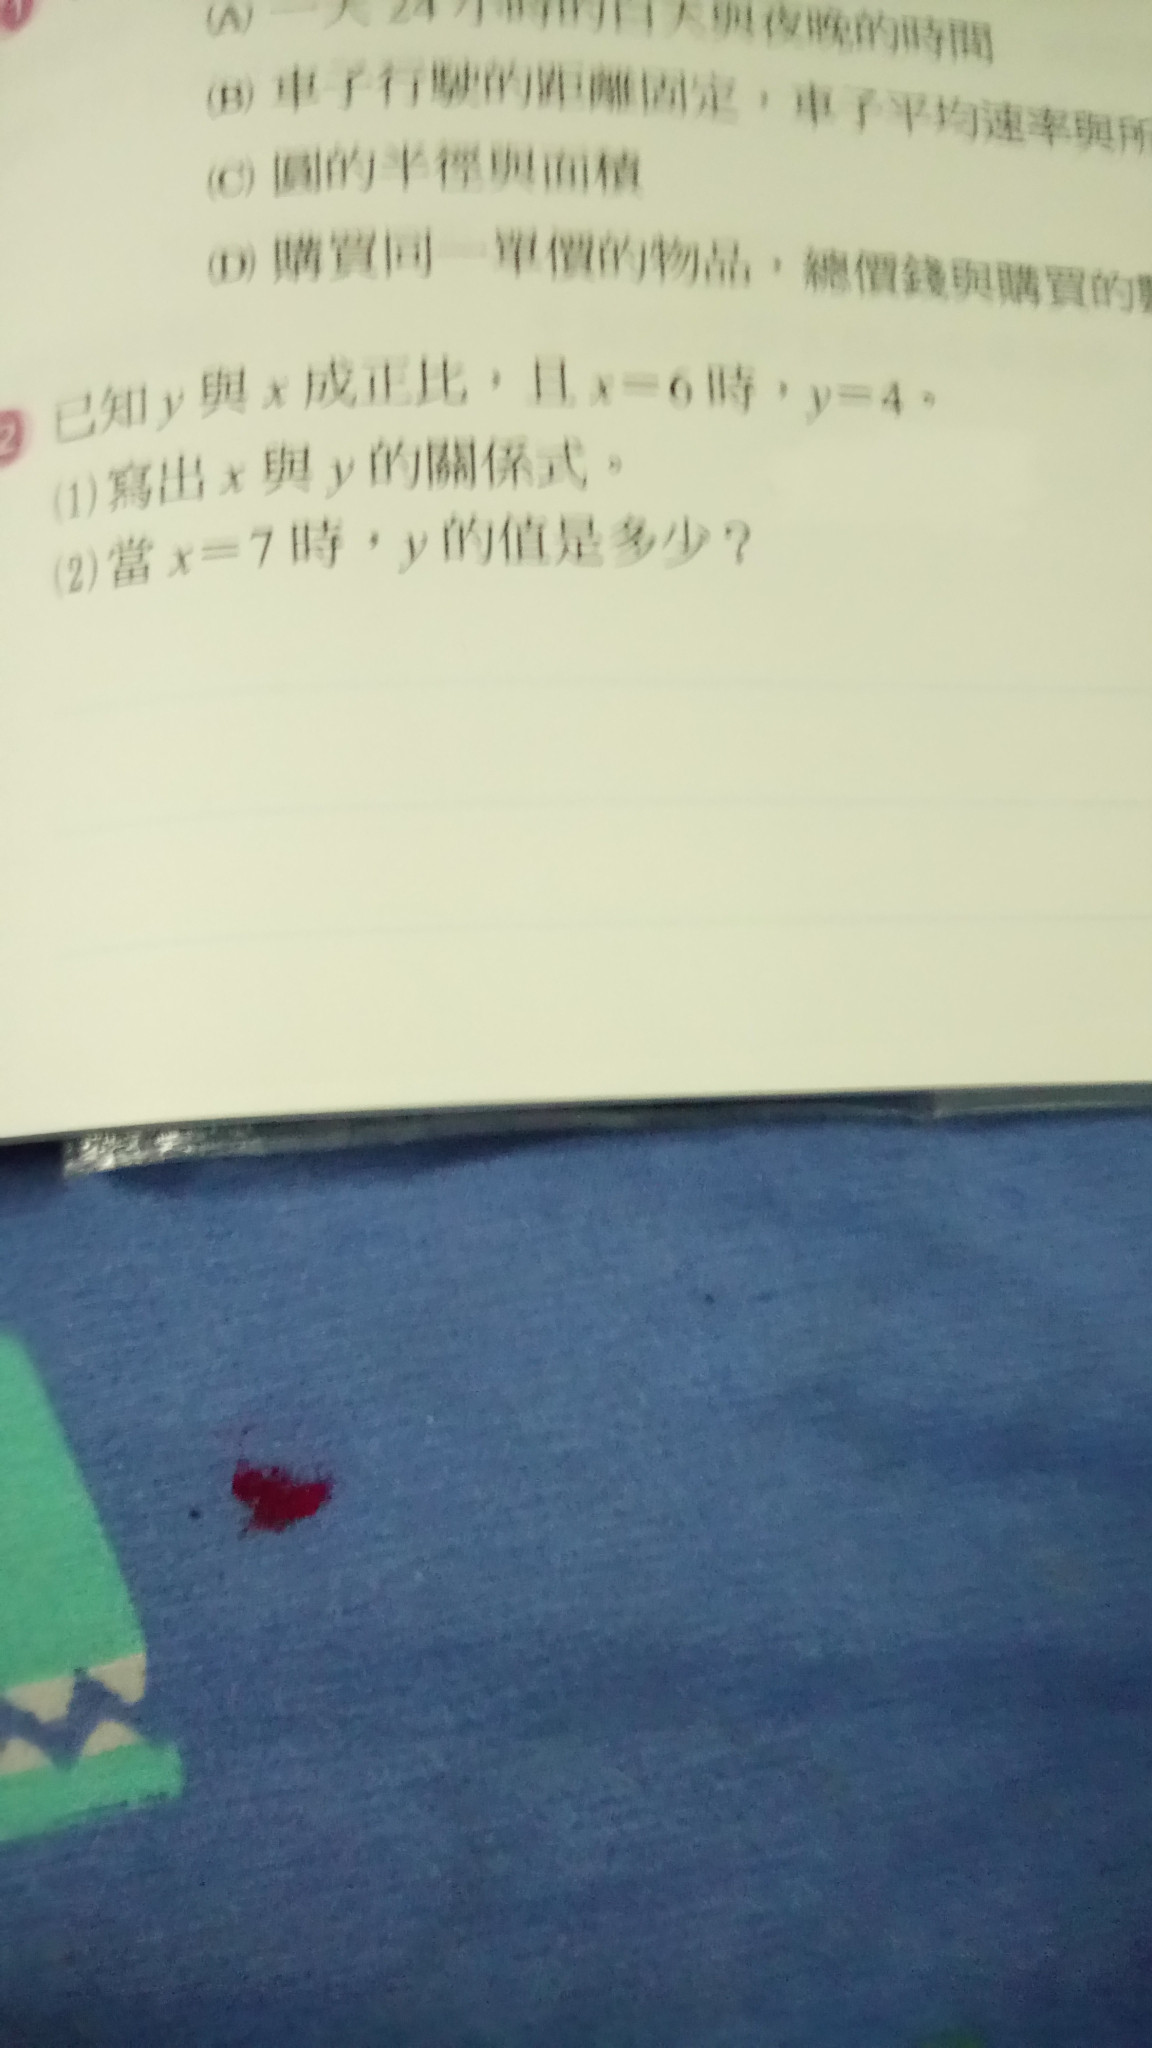 1
(A) 一天 24 小時的白天與夜晚的時間
(B) 車子行駛的距離固定，車子平均速率與所
(C) 圓的半徑與面積
(D) 購買同一單價的物品，總價錢與購買的數
2 已知 y 與 x 成正比，且 x=6 時，y=4。
(1) 寫出 x 與 y 的關係式。
(2) 當 x=7 時，y 的值是多少？